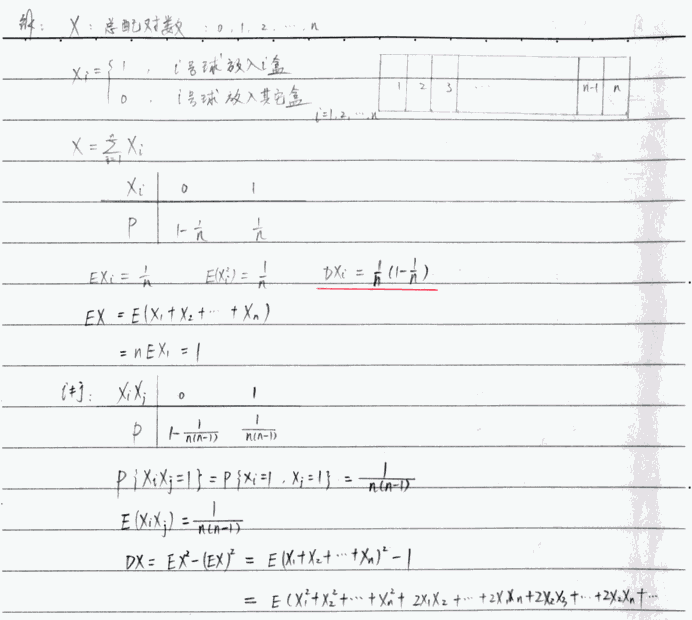 解: X: 总配对数 : 0, 1, 2, ⋯, n
Xi = { 1 , i号球放入i盒
0 , i号球放入其它盒 i=1,2,⋯,n
1 2 3 ⋯ n-1 n
X = Σ_{i=1}^{n} Xi
Xi 0 1
P 1-1/n 1/n
EXi = 1/n E(Xi²) = 1/n DXi = 1/n(1-1/n)
EX = E(X₁+X₂+⋯+Xn)
= nEX₁ = 1
i≠j: XiXj 0 1
P 1-1/n(n-1) 1/n(n-1)
P{XiXj=1} = P{Xi=1, Xj=1} = 1/n(n-1)
E(XiXj) = 1/n(n-1)
DX = EX²-(EX)² = E(X₁+X₂+⋯+Xn)²-1
= E(X₁²+X₂²+⋯+Xn²+2X₁X₂+⋯+2X₁Xn+2X₂X₃+⋯+2X₂Xn+⋯